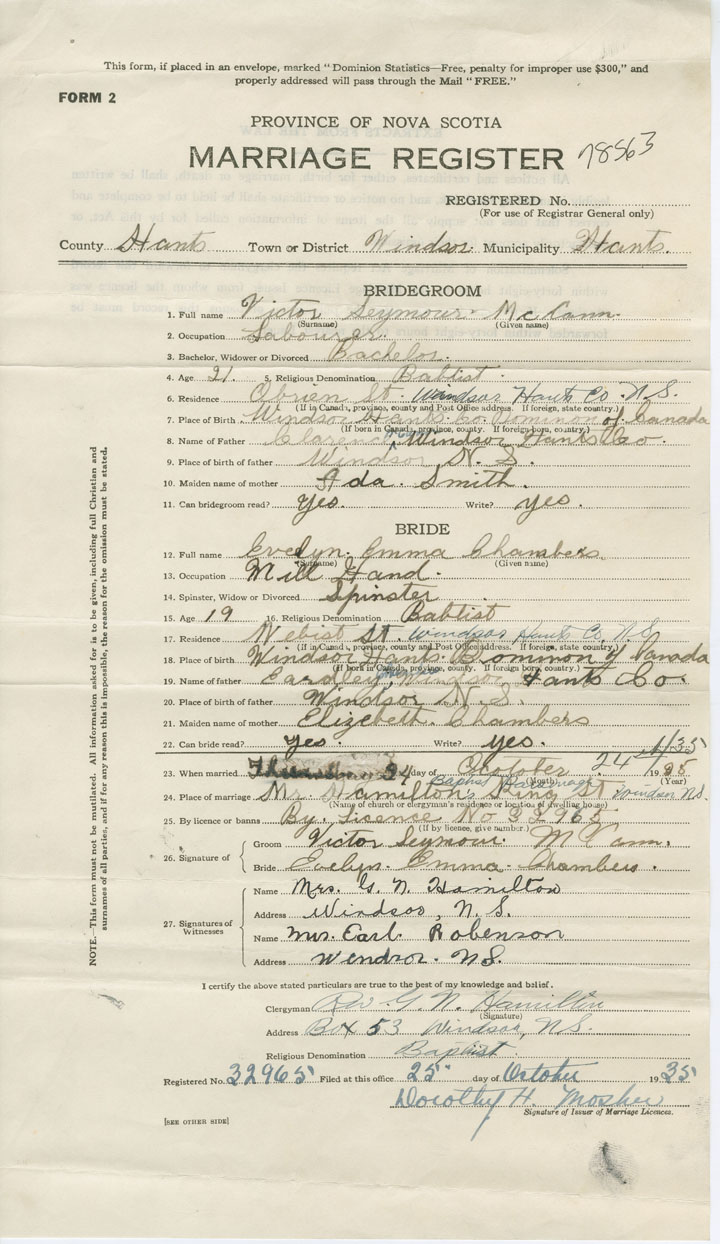 This form, if placed in an envelope, marked "Dominion Statistics—Free, penalty for improper use $300," and
properly addressed will pass through the Mail "FREE."
FORM 2
PROVINCE OF NOVA SCOTIA
MARRIAGE REGISTER 78563
REGISTERED No.
(For use of Registrar General only)
County Hants Town or District Windsor Municipality Hants.
BRIDEGROOM
1. Full name Victor Seymour McCann
(Surname) (Given name)
2. Occupation Labourer.
3. Bachelor, Widower or Divorced Bachelor.
4. Age 21. 5. Religious Denomination Babtist
6. Residence Obrien St. Windsor Hants Co. N.S.
(If in Canada, province, county and Post Office address. If foreign, state country.)
7. Place of Birth Windsor Hants Co Dominon of Canada
(If born in Canada, province, county. If foreign born, country.)
8. Name of Father Clarence Windsor Hants Co.
9. Place of birth of father Windsor N. S.
10. Maiden name of mother Ada Smith.
11. Can bridegroom read? Yes. Write? yes.
BRIDE
12. Full name Evelyn Emma Chambers
(Surname) (Given name)
13. Occupation Mill Hand.
14. Spinster, Widow or Divorced Spinster
15. Age 19 16. Religious Denomination Babtist
17. Residence St. Windsor Hants Co. N.S.
(If in Canada, province, county and Post Office address. If foreign, state country.)
18. Place of birth Windsor Hants Dominon of Canada
(If born in Canada, province, county. If foreign born, country.)
19. Name of father Eardley Windsor Hants Co
20. Place of birth of father Windsor N. S.
21. Maiden name of mother Elizebeth Chambers
22. Can bride read? yes. Write? yes.
23. When married 24 day of October 24 1935
(Month) (Year)
24. Place of marriage Mr. Hamilton's Baptist Parsonage King St Windsor N.S.
(Name of church or clergyman's residence or location of dwelling house)
25. By licence or banns By. Licence No 32965
(If by licence, give number.)
26. Signature of
Groom Victor Seymour McCann.
Bride Evelyn Emma Chambers.
27. Signatures of Witnesses
Name Mrs. G. N. Hamilton
Address Windsor, N.S.
Name Mrs. Earl Robenson
Address Windsor. N.S.
I certify the above stated particulars are true to the best of my knowledge and belief.
Clergyman Rev G. N. Hamilton
(Signature)
Address Box 53 Windsor, N.S.
Religious Denomination Baptist
Registered No. 32965 Filed at this office 25 day of October 1935
Dorothy H. Mosher
Signature of Issuer of Marriage Licences.
[SEE OTHER SIDE]
NOTE.—This form must not be mutilated. All information asked for is to be given, including full Christian and
surnames of all parties, and if for any reason this is impossible, the reason for the omission must be stated.